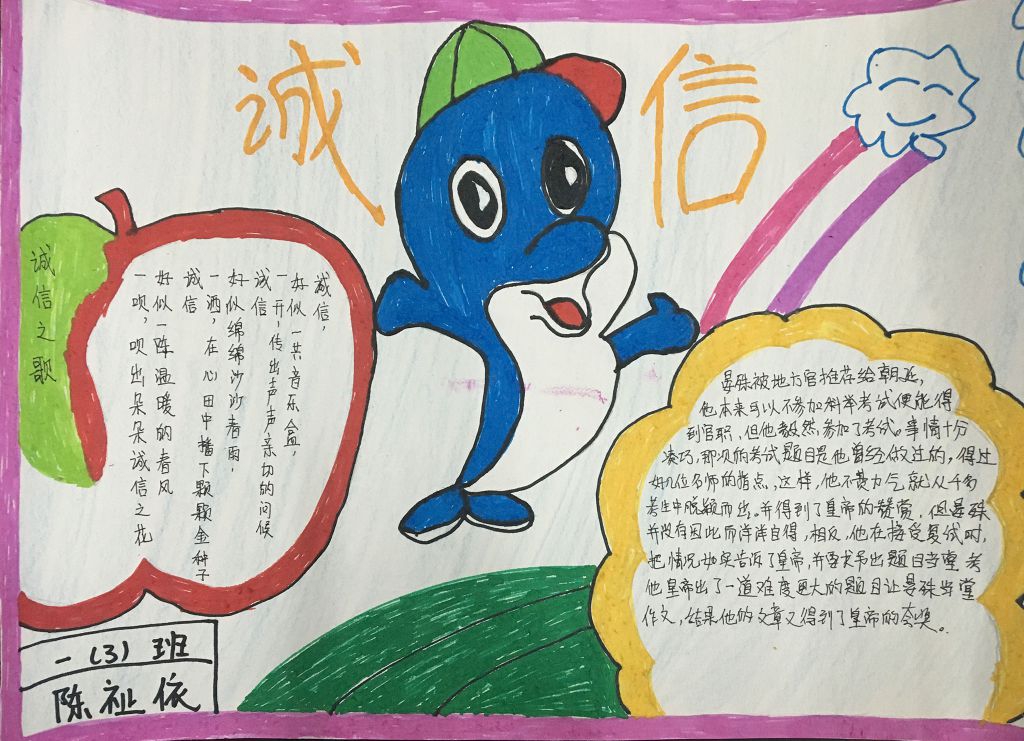 诚信
诚信之歌
诚信,
好似一共音乐盒,
一开,传出声声亲切的问候
诚信
好似绵绵沙沙春雨,
一洒,在心田中播下颗颗金种子
诚信
好似一阵温暖的春风
一呗,呗出朵朵诚信之花
晏殊被地方官推荐给朝廷,
他本来可以不参加科举考试便能得
到官职,但他毅然参加了考试。事情十分
凑巧,那次的考试题目是他曾经做过的,得过
好几位名师的指点,这样,他不费力气就从千多
考生中脱颖而出。并得到了皇帝的赞赏,但晏殊
并没有因此而洋洋自得,相反,他在接受复试时,
把情况如实告诉了皇帝,并要求另出题目当堂考
他皇帝出了一道难度更大的题目让晏殊当堂
作文,结果他的文章又得到了皇帝的夸奖。
一(3)班
陈祉依